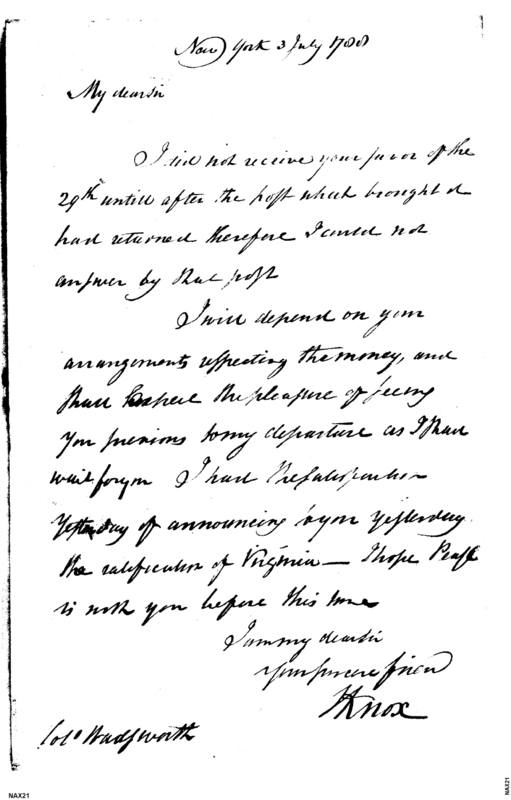 New York 3 July 1788
My dear sir
I did not receive your favor of the
29th untill after the post which brought it
had returned therefore I could not
answer by that post
I will depend on your
arrangements respecting the money, and
shall expect the pleasure of seeing
you previous to my departure as I shall
wait for you I had the satisfaction
yesterday of announcing to you yesterday
the ratification of Virginia — I hope Pease
is with you before this time
I am my dear sir
Your sincere friend
HKnox
Colo Wadsworth
NAX21
NAX21